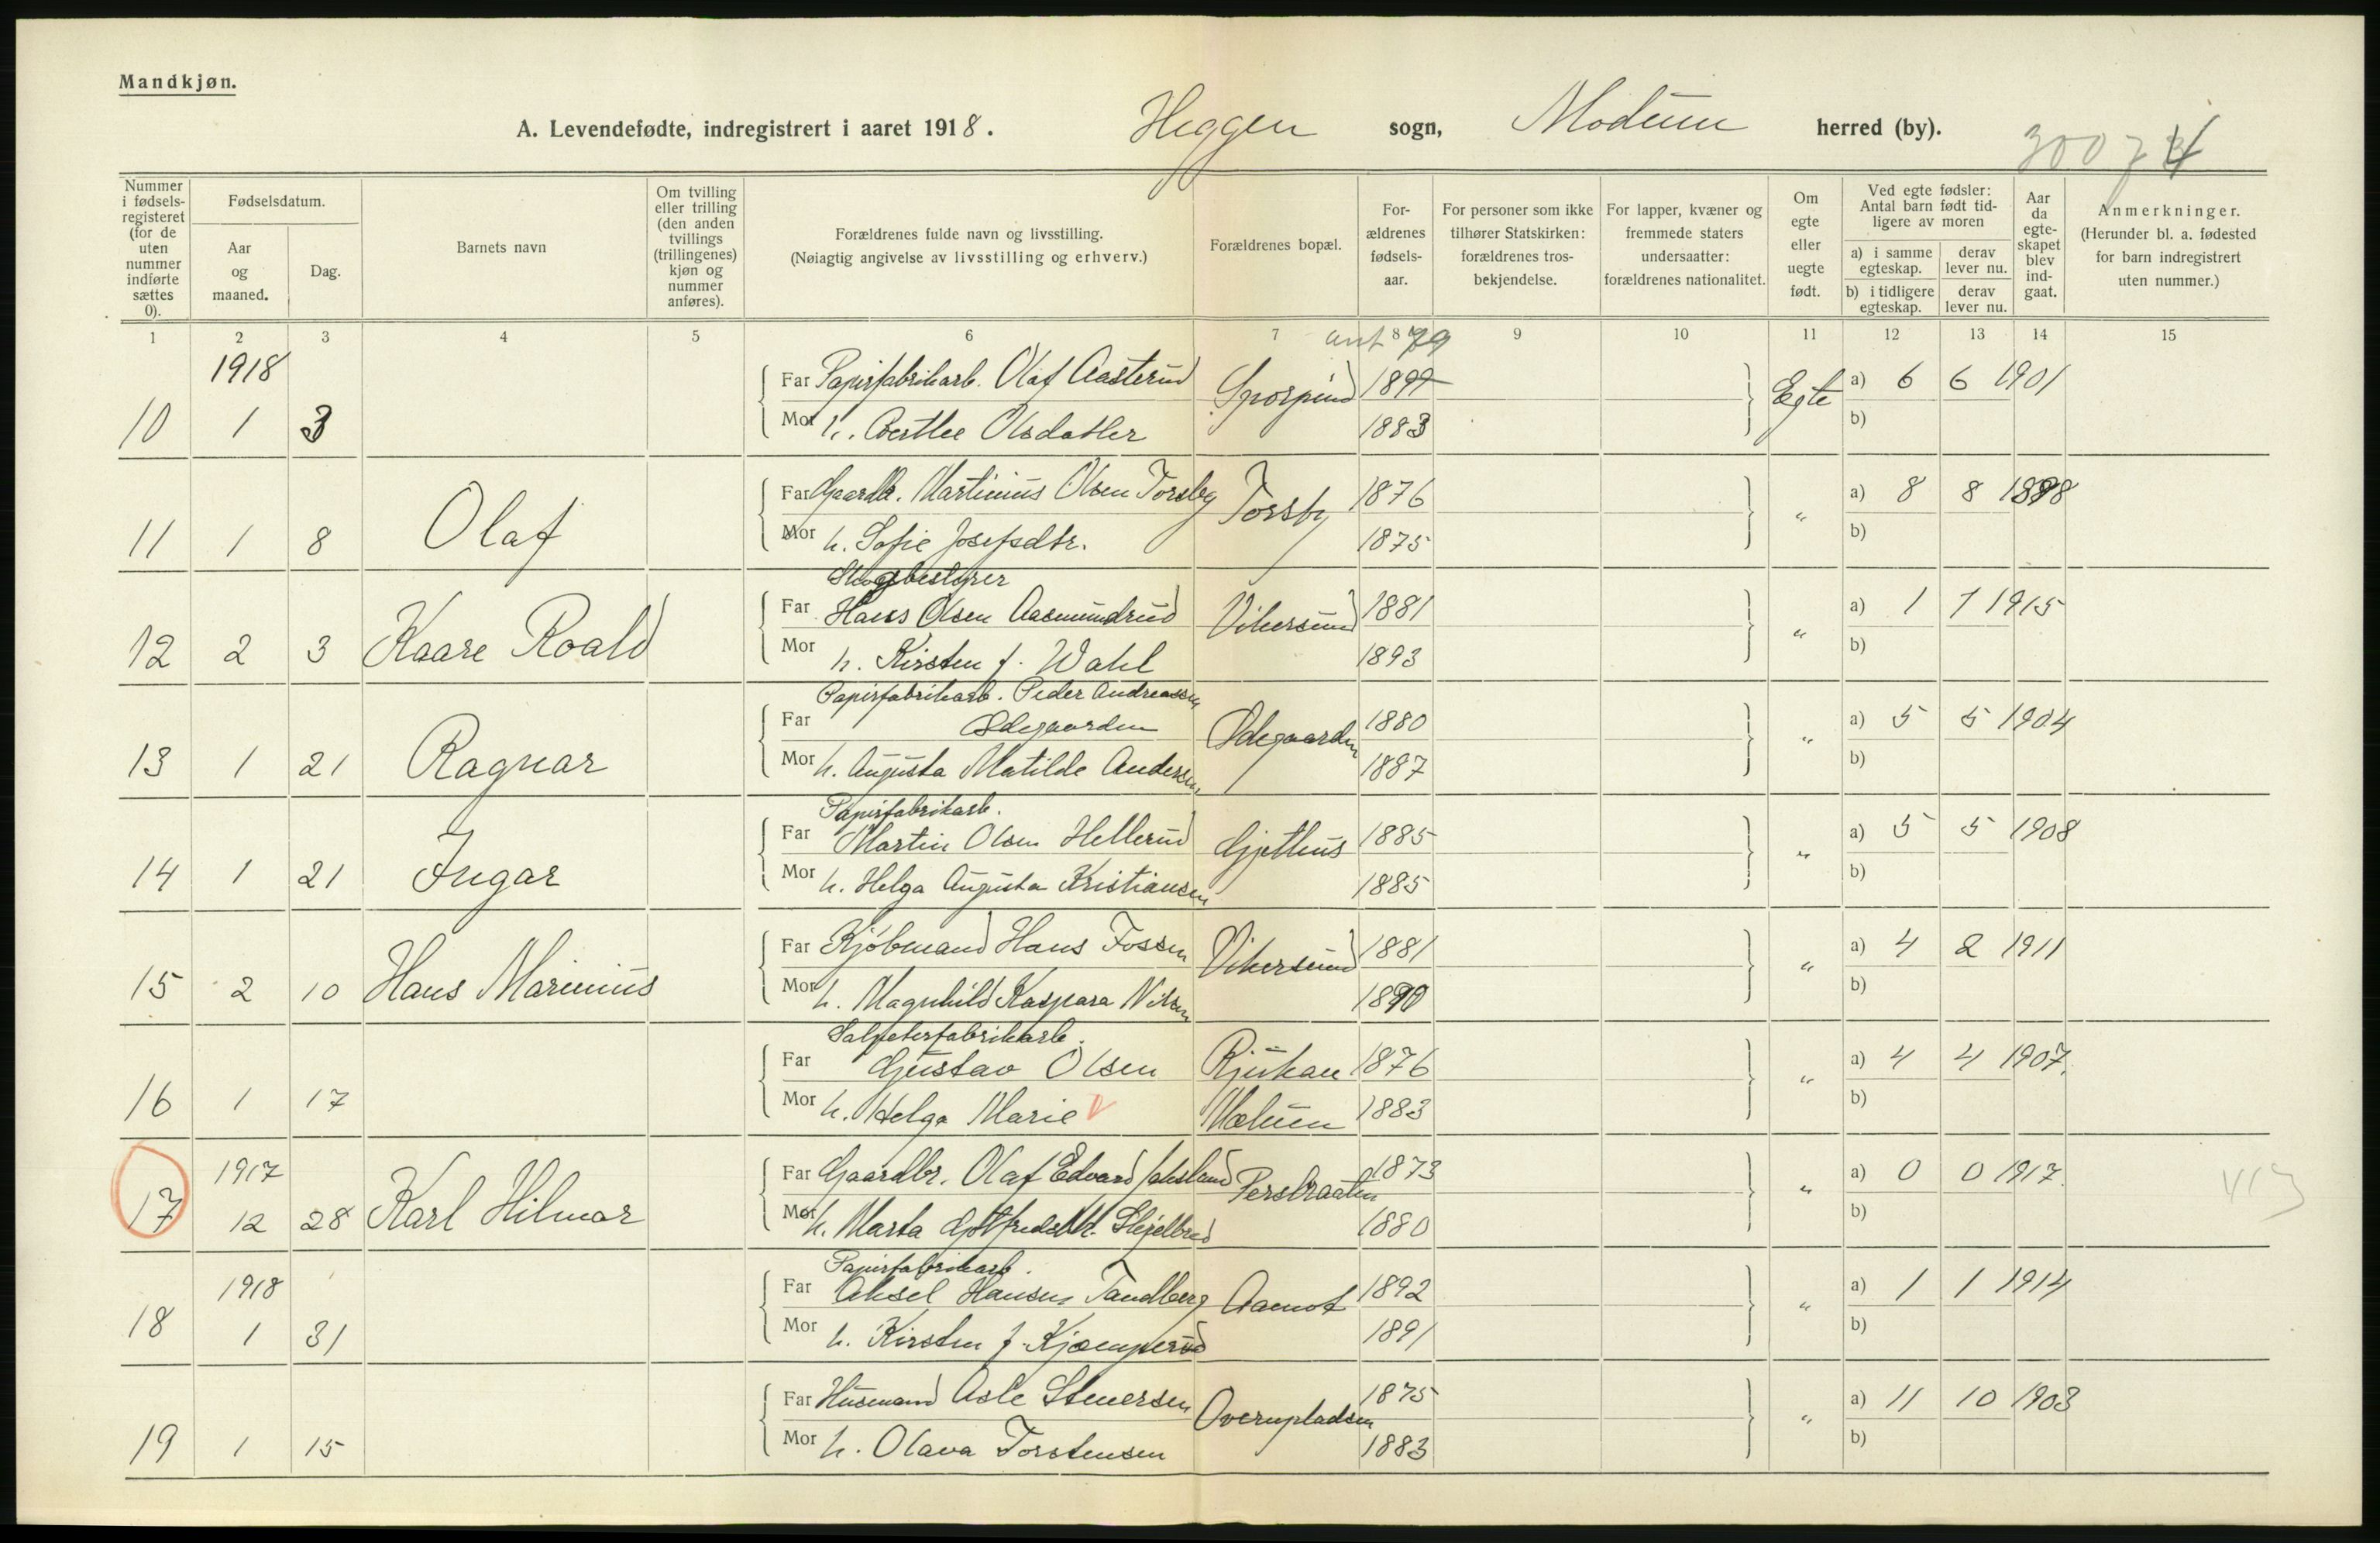 Mandkjøn.
A. Levendefødte, indregistrert i aaret 1918. Heggen sogn, Modum herred (by).
Nummer i fødselsregisteret (for de uten nummer indførte sættes 0).
Fødselsdatum.
Aar og maaned.
Dag.
Barnets navn
Om tvilling eller trilling (den anden tvillings (trillingenes) kjøn og nummer anføres).
Forældrenes fulde navn og livsstilling.
(Nøiagtig angivelse av livsstilling og erhverv.)
Forældrenes bopæl.
Forældrenes fødselsaar.
For personer som ikke tilhører Statskirken: forældrenes trosbekjendelse.
For lapper, kvæner og fremmede staters undersaatter: forældrenes nationalitet.
Om egte eller uegte født.
Ved egte fødsler: Antal barn født tidligere av moren
a) i samme egteskap. derav lever nu.
b) i tidligere egteskap. derav lever nu.
Aar da egteskapet blev indgaat.
Anmerkninger.
(Herunder bl. a. fødested for barn indregistrert uten nummer.)
1 2 3 4 5 6 7 8 9 10 11 12 13 14 15
1918
Far Papirfabrikarb. Olaf Aasterud 1879 Egte a) 6 6 1901
10 1 3 Mor h. Berthe Olsdatter 1883 b)
Far Gaardbr. Martinius Olsen Torsby Torsby 1876 " a) 8 8 1898
11 1 8 Olaf Mor h. Sofie Josefsdtr. 1875 b)
Skogsbestyrer
Far Hans Olsen Aasmundrud Vikersund 1881 " a) 1 1 1915
12 2 3 Kaare Roald Mor h. Kirsten f. Wahl 1893 b)
Papirfabrikarb. Peder Andreassen
Far Ødegaarden Ødegaarden 1880 " a) 5 5 1904
13 1 21 Ragnar Mor h. Augusta Matilde Andersen 1887 b)
Papirfabrikarb.
Far Martin Olsen Hellerud Gjethus 1885 " a) 5 5 1908
14 1 21 Ingar Mor h. Helga Augusta Kristiansen 1885 b)
Far Kjøbmand Hans Fossen Vikersund 1881 " a) 4 2 1911
15 2 10 Hans Marinius Mor h. Magnhild Kaspara Nilsen 1890 b)
Salpeterfabrikarb.
Far Gustav Olsen Rjukan 1876 " a) 4 4 1907.
16 1 17 Mor h. Helga Marie Modum 1883 b)
1917
Far Gaardbr. Olaf Edvard Perstraaten 1873 " a) 0 0 1917.
17 12 28 Karl Hilmar Mor h. Marta 1880 b)
1918
Papirfabrikarb.
Far Aksel Hansen Tandberg Aamot 1892 " a) 1 1 1914
18 1 31 Mor h. Kirsten f. Kjæmperud 1891 b)
Far Husmand Asle Stenersen Overnpladsen 1875 " a) 11 10 1903
19 1 15 Mor h. Olava Torstensen 1883 b)